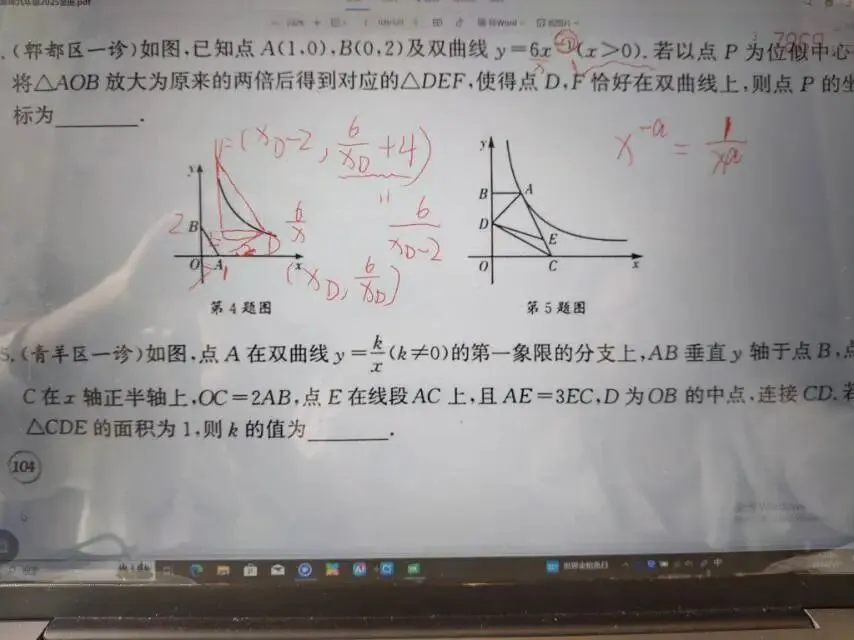 .(郫都区一诊)如图,已知点 A(1,0),B(0,2)及双曲线 y=6x⁻¹(x>0).若以点 P 为位似中心
将△AOB 放大为原来的两倍后得到对应的△DEF,使得点 D,F 恰好在双曲线上,则点 P 的坐
标为________.
F=(x_D-2, 6/x_D+4)
x^{-a} = 1/x^a
y
B
2
O
A
1
D
x
6/x
"
6/(x_D-2)
(x_D, 6/x_D)
y
B
A
D
E
O
C
x
第 4 题图
第 5 题图
5.(青羊区一诊)如图,点 A 在双曲线 y=k/x(k≠0)的第一象限的分支上,AB 垂直 y 轴于点 B,点
C 在 x 轴正半轴上,OC=2AB,点 E 在线段 AC 上,且 AE=3EC,D 为 OB 的中点,连接 CD.若
△CDE 的面积为 1,则 k 的值为________.
104